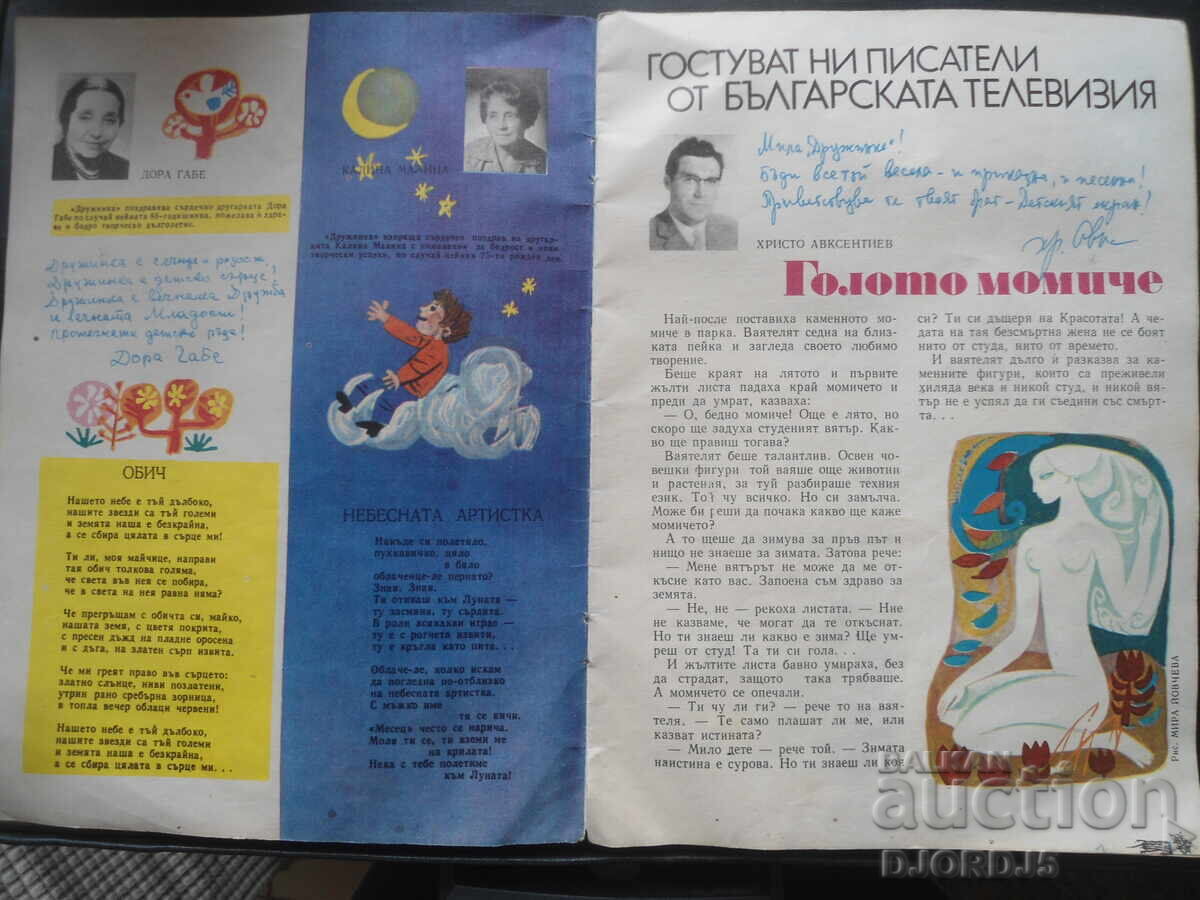 ДОРА ГАБЕ
«Дружинка» поздравява сърдечно другарката Дора
Габе по случай нейната 85-годишнина, пожелава ѝ здра-
ве и бодро творческо дълголетие.
Дружинка е слънце и радост,
Дружинка е детско сърце,
Дружинка е вечната Дружба
и вечната Младост!
протегнати детски ръце!
Дора Габе
ОБИЧ
Нашето небе е тъй дълбоко,
нашите звезди са тъй големи
и земята наша е безкрайна,
а се сбира цялата в сърце ми!
Ти ли, моя майчице, направи
тая обич толкова голяма,
че света във нея се побира,
че в света на нея равна няма?
Че прегръщам с обичта си, майко,
нашата земя, с цветя покрита,
с пресен дъжд на пладне оросена
и с дъга, на златен сърп извита.
Че ми греят право във сърцето:
златно слънце, ниви позлатени,
утрин рано сребърна зорница,
в топла вечер облаци червени!
Нашето небе е тъй дълбоко,
нашите звезди са тъй големи
и земята наша е безкрайна,
а се сбира цялата в сърце ми. . .
КАЛИНА МАЛИНА
«Дружинка» изпраща сърдечен поздрав на другар-
ката Калина Малина с пожелание за бодрост и нови
творчески успехи, по случай нейния 75-ти рожден ден.
НЕБЕСНАТА АРТИСТКА
Накъде си полетяло,
пухкавичко, цяло
в бяло
облаченце-ле пернато?
Зная. Зная.
Ти отиваш към Луната —
ту засмяна, ту сърдита.
В роли всякакви играе —
ту е с рогчета извити,
ту е кръгла като пита. . .
Облаче-ле, колко искам
да погледна по-отблизко
на небесната артистка.
С мъжко име
тя се кичи.
«Месец» често се нарича.
Моля ти се, ти вземи ме
на крилата!
Нека с тебе полетиме
към Луната!
ГОСТУВАТ НИ ПИСАТЕЛИ
ОТ БЪЛГАРСКАТА ТЕЛЕВИЗИЯ
Мила „Дружинке"!
Бъди все тъй весела - и приказна, и песенна!
Приветствува те твоят брат - Детският екран!
Хр. Авкс
ХРИСТО АВКСЕНТИЕВ
Голото момиче
Най-после поставиха каменното мо-
миче в парка. Ваятелят седна на близ-
ката пейка и загледа своето любимо
творение.
Беше краят на лятото и първите
жълти листа падаха край момичето и
преди да умрат, казваха:
— О, бедно момиче! Още е лято, но
скоро ще задуха студеният вятър. Как-
во ще правиш тогава?
Ваятелят беше талантлив. Освен чо-
вешки фигури той ваяше още животни
и растения, за туй разбираше техния
език. Той чу всичко. Но си замълча.
Може би реши да почака какво ще каже
момичето?
А то щеше да зимува за пръв път и
нищо не знаеше за зимата. Затова рече:
— Мене вятърът не може да ме от-
късне като вас. Запоена съм здраво за
земята.
— Не, не — рекоха листата. — Ние
не казваме, че могат да те откъснат.
Но ти знаеш ли какво е зима? Ще ум-
реш от студ! Та ти си гола. . .
И жълтите листа бавно умираха, без
да страдат, защото така трябваше.
А момичето се опечали.
— Ти чу ли ги? — рече то на вая-
теля. — Те само плашат ли ме, или
казват истината?
— Мило дете — рече той. — Зимата
наистина е сурова. Но ти знаеш ли коя
си? Ти си дъщеря на Красотата! А че-
дата на тая безсмъртна жена не се боят
нито от студа, нито от времето.
И ваятелят дълго ѝ разказва за ка-
менните фигури, които са преживели
хиляда века и никой студ, и никой вя-
тър не е успял да ги съедини със смърт-
та. . .
Рис. МИРА ЙОВЧЕВА
BALKAN
auction
DJORDJ5